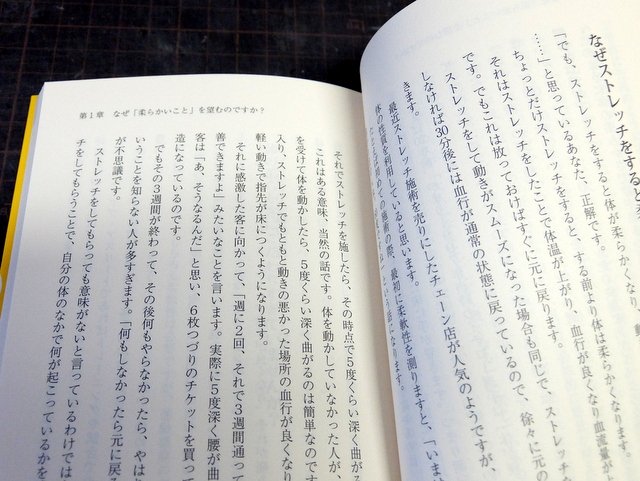 なぜストレッチをすると
「でも、ストレッチをすると体が柔らかくなり、動
……」と思っているあなた、正解です。
ちょっとだけストレッチをすると、する前より体は柔らかくなります。
それはストレッチをしたことで体温が上がり、血行が良くなり血流量が上
です。でもこれは放っておけばすぐに元に戻ります。
ストレッチをして動きがスムーズになった場合も同じで、ストレッチ
しなければ30分後には血行が通常の状態に戻っているので、徐々に元の
きます。
最近ストレッチ施術を売りにしたチェーン店が人気のようですが、
体の性質を利用していると思います。
の施術の際、最初に柔軟性を測りますと、「いまは
第1章 なぜ「柔らかいこと」を望むのですか?
それでストレッチを施したら、その時点で5度くらい深く曲がる
これはある意味、当然の話です。体を動かしていなかった人が、
を受けて体を動かしたら、5度くらい深く曲がるのは簡単なのです
入り、ストレッチでもともと動きの悪かった場所の血行が良くなり
軽い動きで指先が床につくようになります。
それに感激した客に向かって、「週に2回、それで3週間通って
善できますよ」みたいなことを言います。実際に5度深く腰が曲
客は「あ、そうなるんだ」と思い、6枚つづりのチケットを買って
造になっているのです。
でもその3週間が終わって、その後何もやらなかったら、やはり
いうことを知らない人が多すぎます。「何もしなかったら元に戻る
が不思議です。
ストレッチをしてもらっても意味がないと言っているわけでは
チをしてもらうことで、自分の体のなかで何が起こっているかを